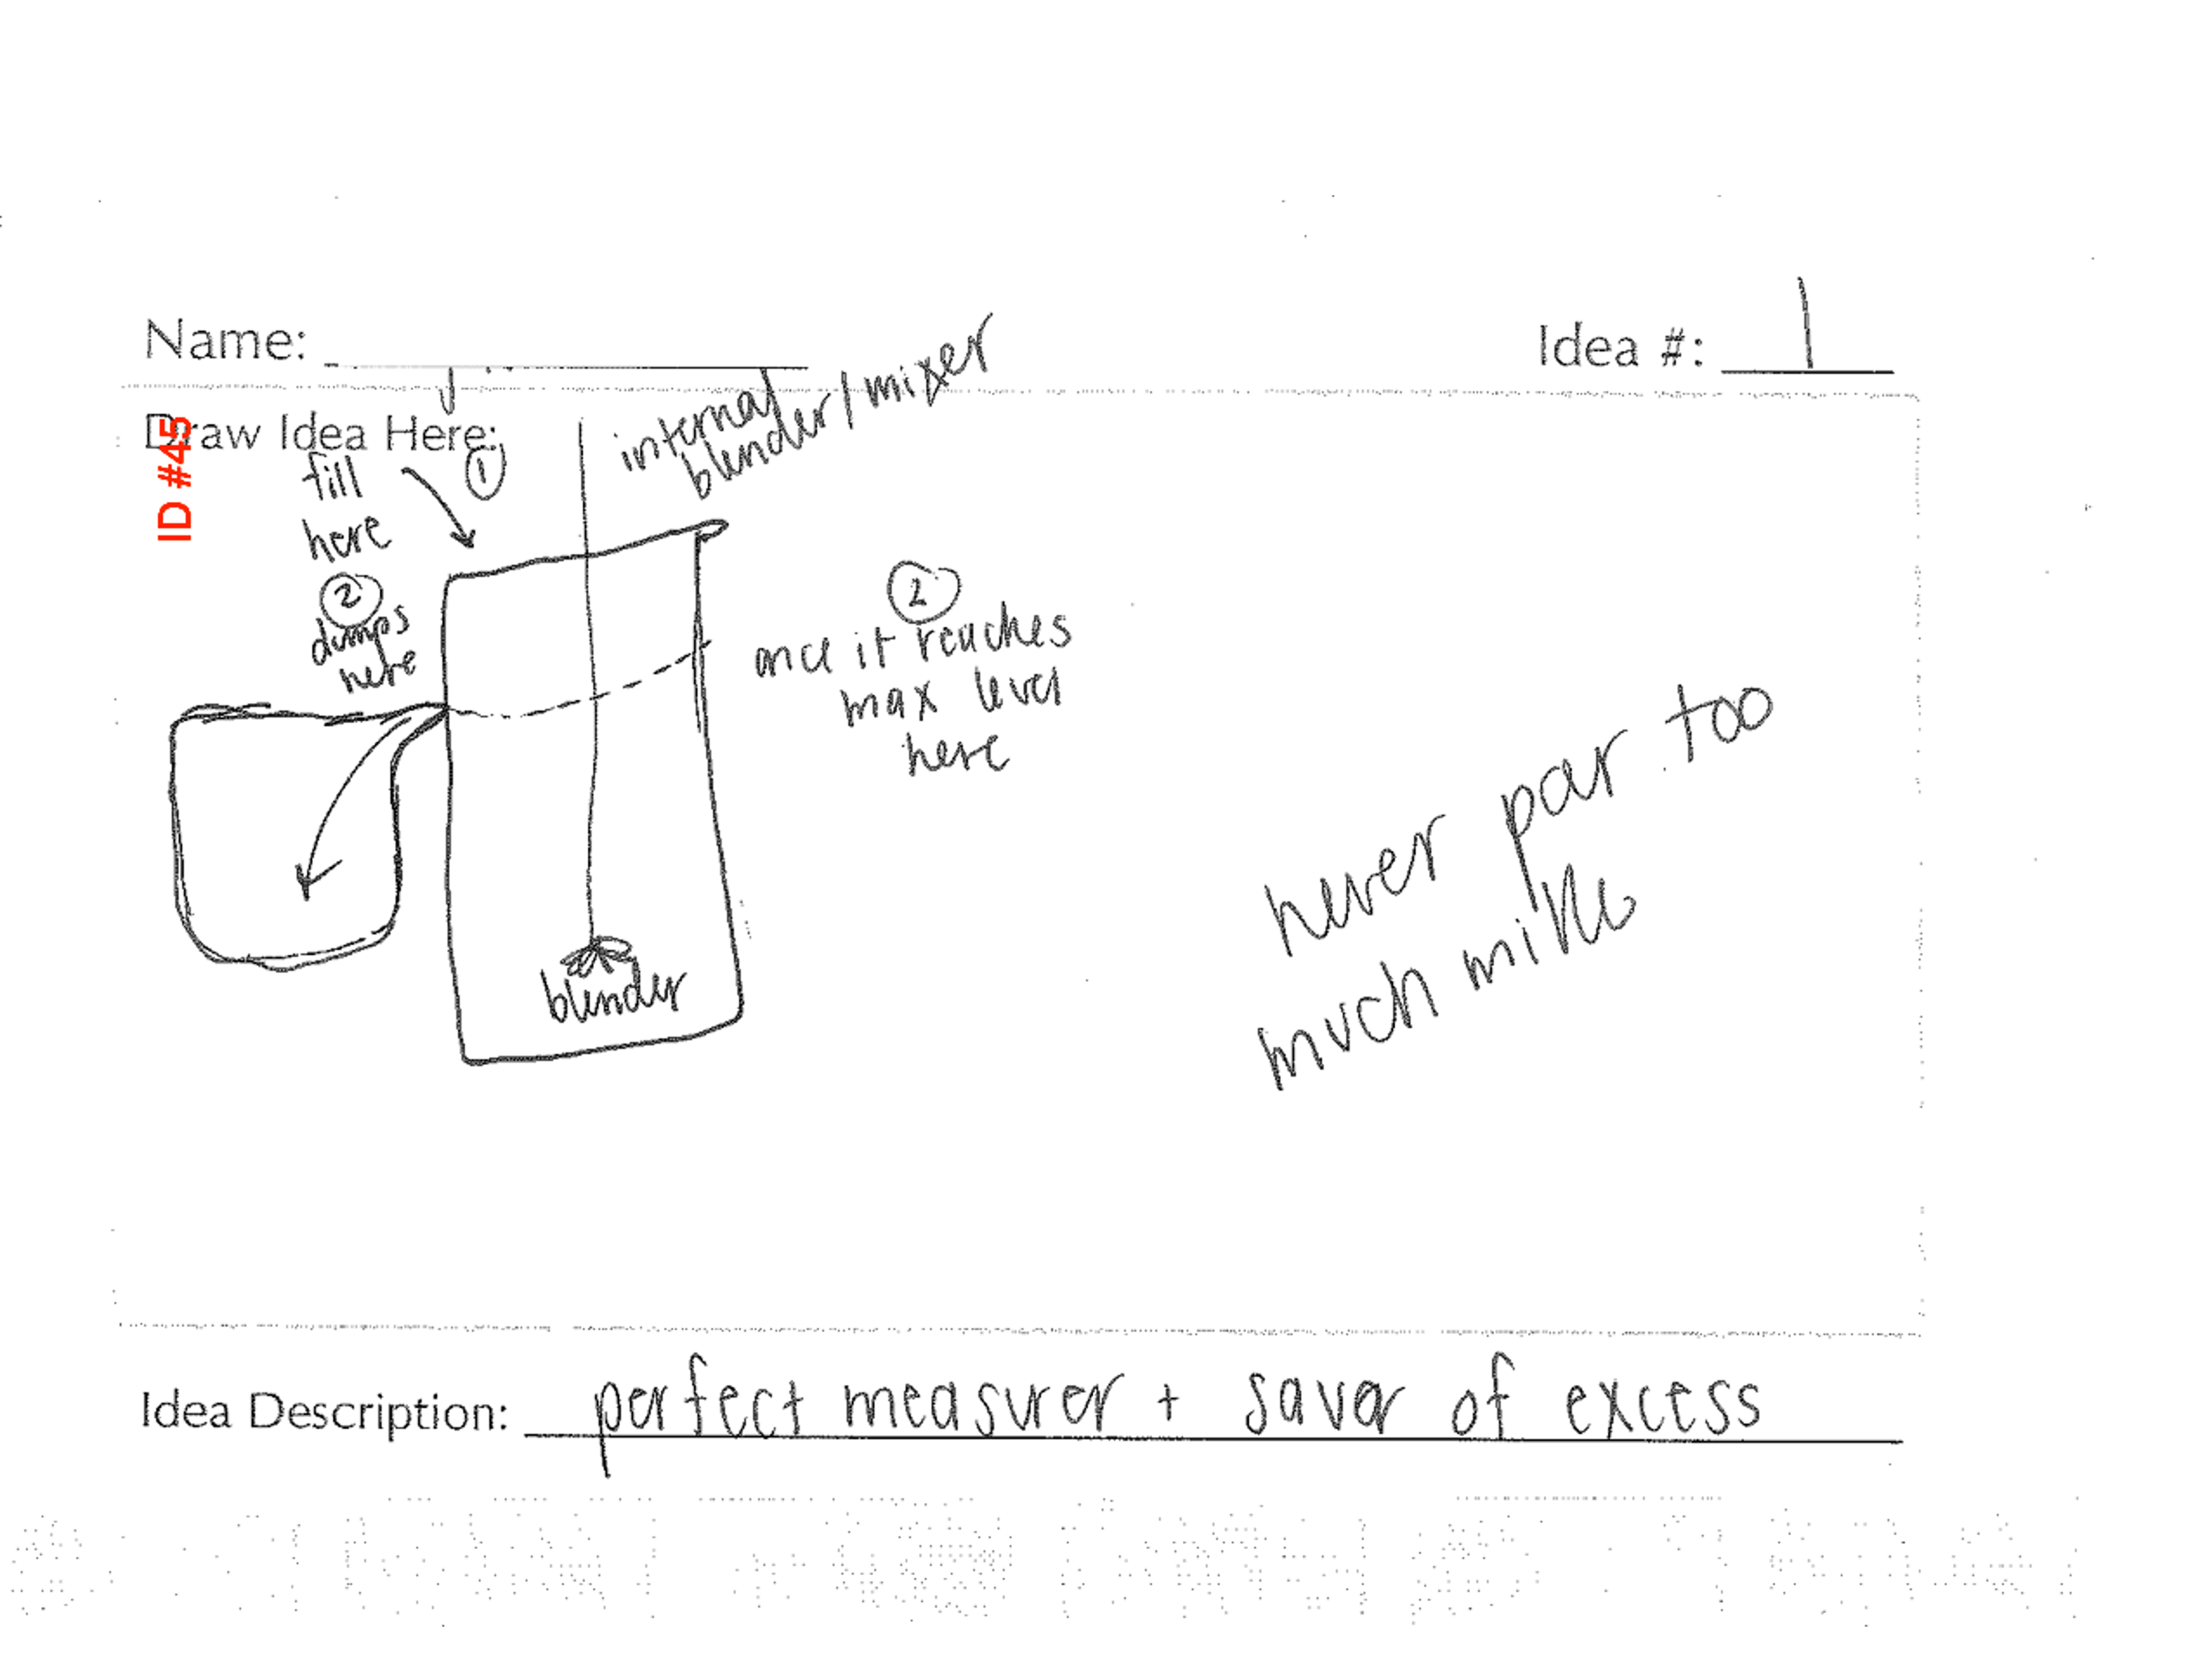 Name:
Idea #: 1
ID #45
Draw Idea Here:
fill
here
①
internal
blender/mixer
②
dumps
here
②
once it reaches
max level
here
blender
never par too
much milk
Idea Description: perfect measurer + saver of excess